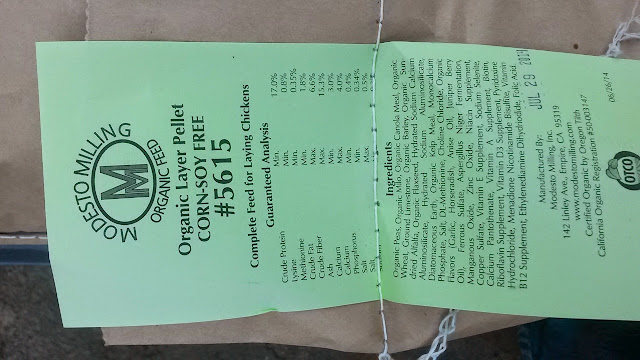 MODESTO MILLING
M
ORGANIC FEED
Organic Layer Pellet
CORN-SOY FREE
#5615
Complete Feed for Laying Chickens
Guaranteed Analysis
Crude Protein Min. 17.0%
Lysine Min. 0.8%
Methionine Min. 0.35%
Crude Fat Min. 1.8%
Crude Fiber Max. 6.6%
Ash Max. 15.3%
Calcium Min. 3.0%
Calcium Max. 4.0%
Phosphorus Min. 0.4%
Salt Min. 0.34%
Salt Max. 0.5%
Ingredients
Organic Peas, Organic Milo, Organic Canola Meal, Organic
Wheat, Ground Limestone, Organic Barley, Organic Sun-
dried Alfalfa, Organic Flaxseed, Hydrated Sodium Calcium
Aluminosilicate, Hydrated Aluminosilicate,
Diatomaceous Earth, Organic Kelp Meal, Monocalcium
Phosphate, Salt, DL-Methionine, Choline Chloride, Organic
Flavors (Garlic, Horseradish, Anise Oil, Juniper Berry
Oil), Ferrous Sulfate, Aspergillus Niger Fermentation,
Manganous Oxide, Zinc Oxide, Niacin Supplement,
Copper Sulfate, Vitamin E Supplement, Sodium Selenite,
Calcium Pantothenate, Vitamin A Supplement, Biotin,
Riboflavin Supplement, Vitamin D3 Supplement, Pyridoxine
Hydrochloride, Menadione Nicotinamide Bisulfite, Vitamin
B12 Supplement, Ethylenediamine Dihydriodide, Folic Acid.
JUL 29 2014
Manufactured By:
Modesto Milling, Inc.
142 Linley Ave, Empire, CA 95319
www.modestomilling.com
Certified Organic by Oregon Tilth
California Organic Registration #50-003147
06/26/14
OTCO